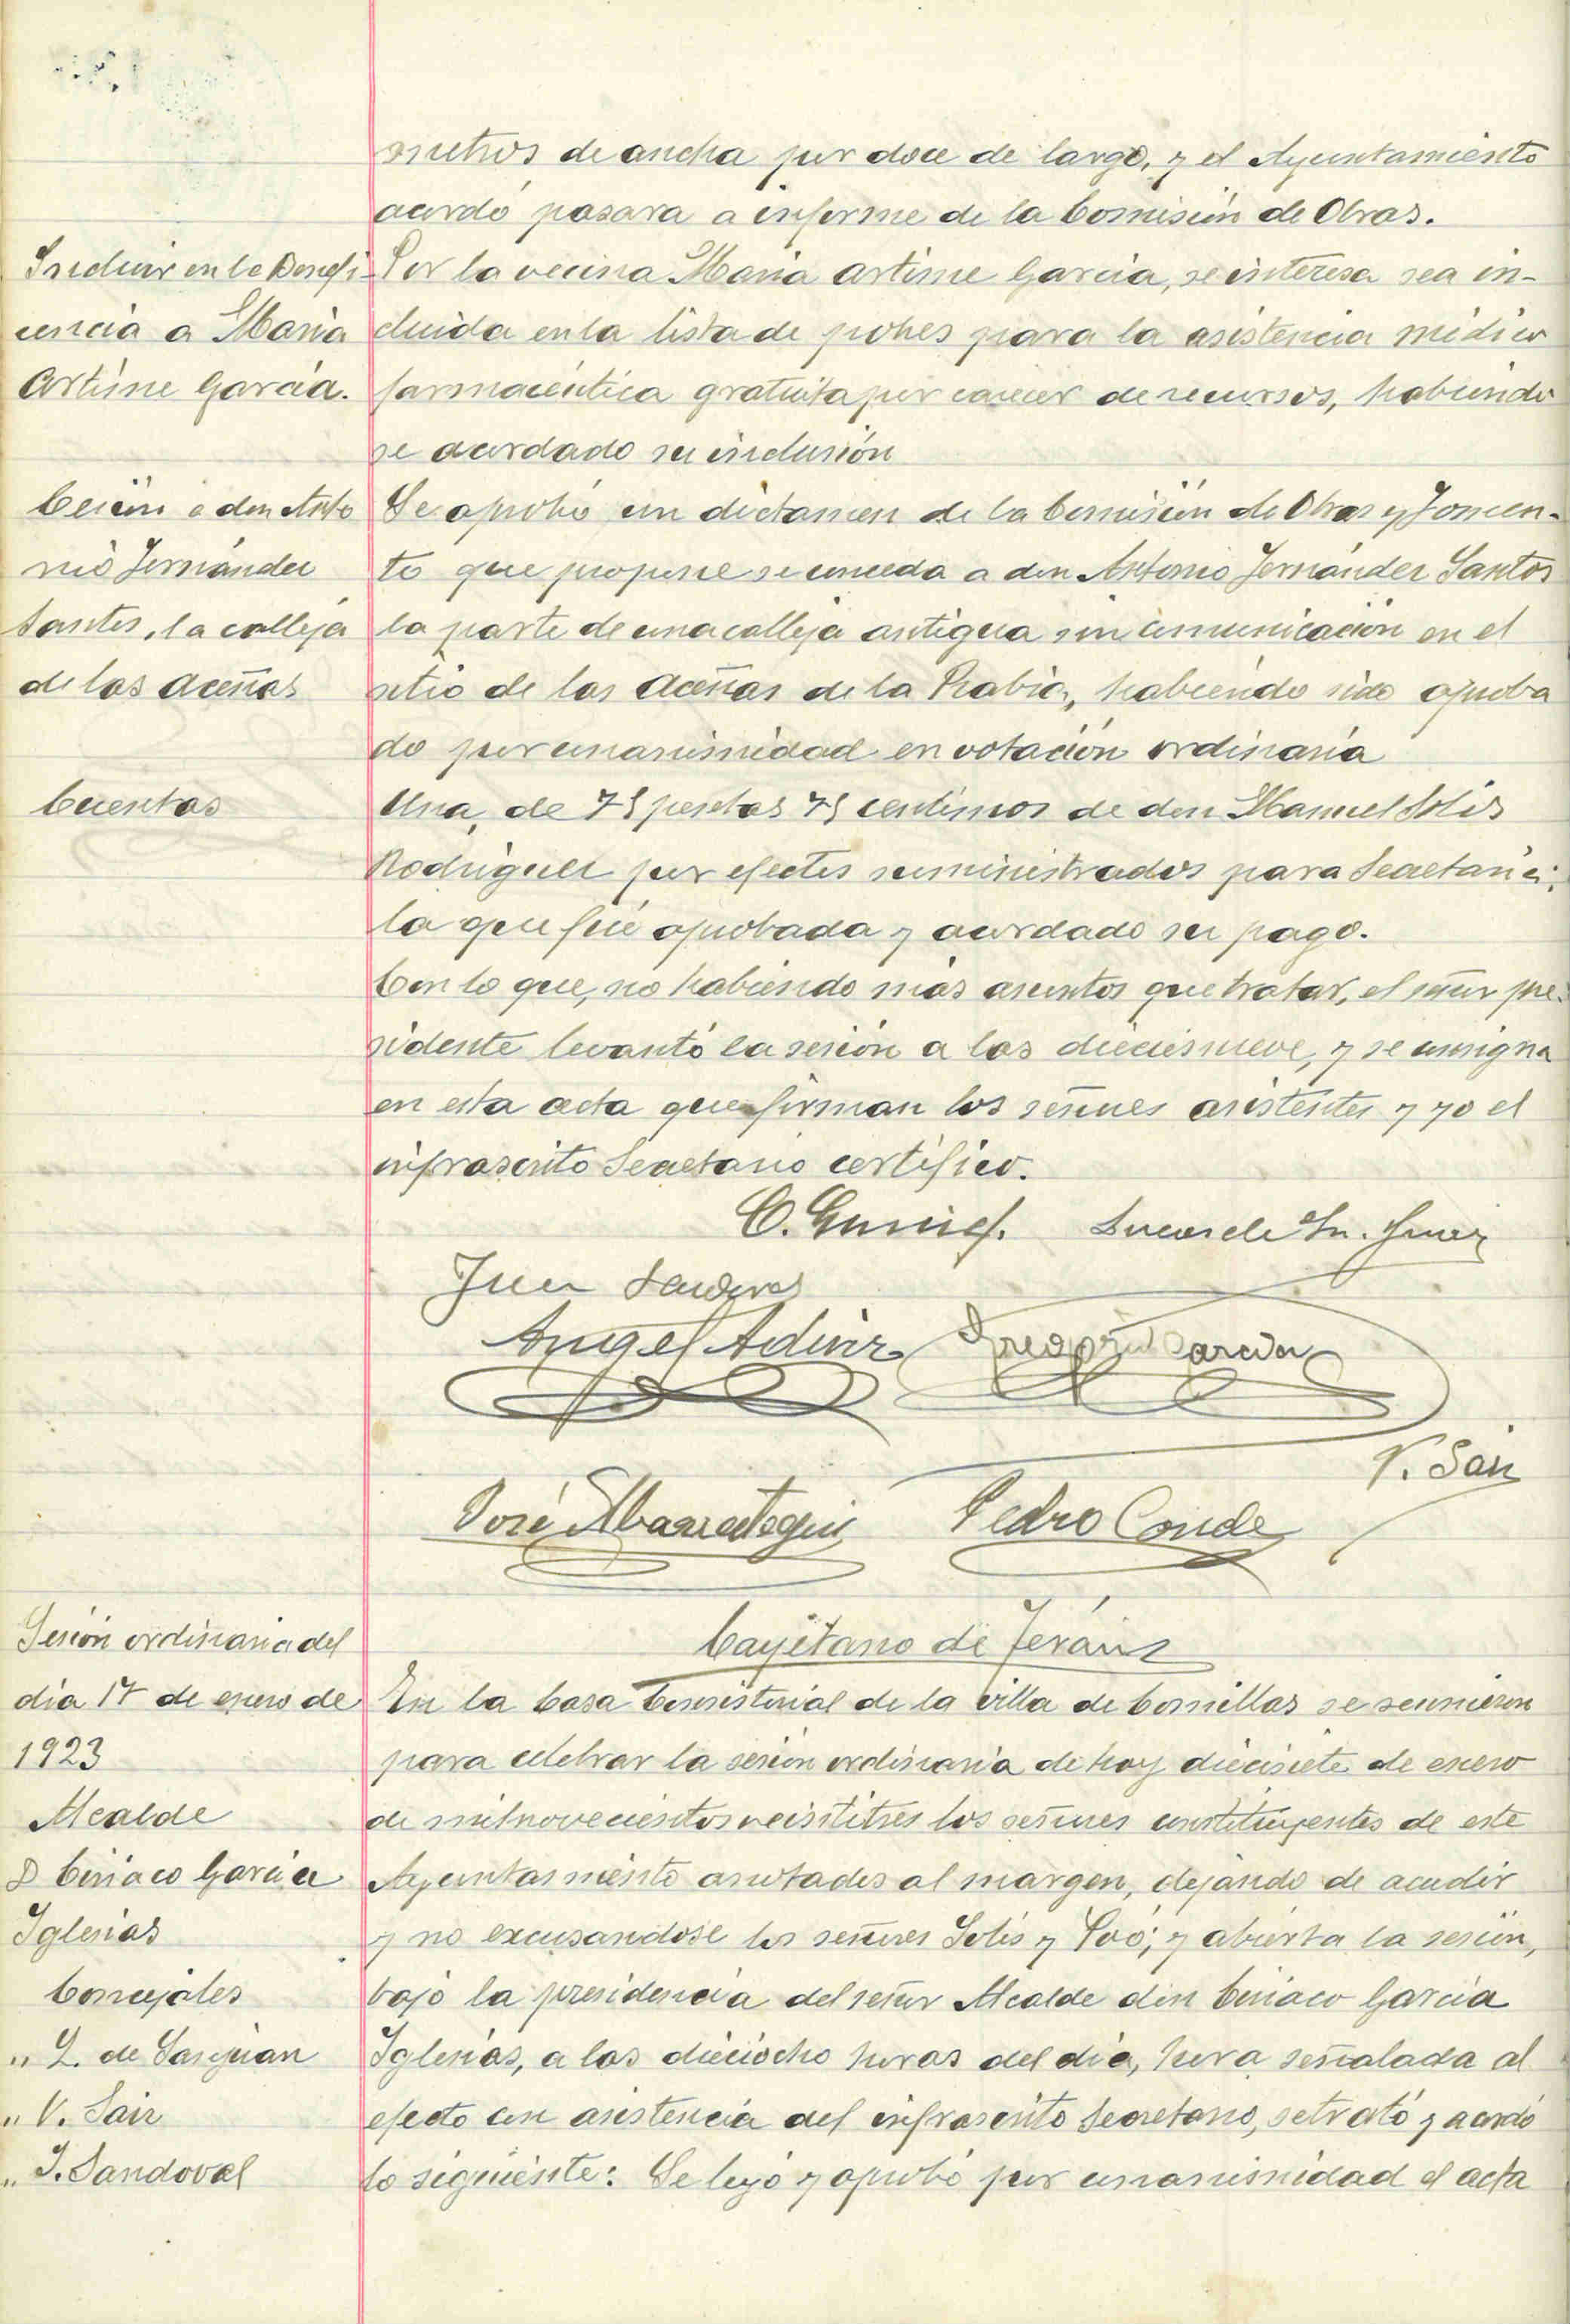 metros de ancha por doce de largo, y el Ayuntamiento
acordó pasara a informe de la Comisión de Obras.
Incluir en la Benefi-
cencia a Maria
Artime Garcia.
Por la vecina Maria Artime Garcia, se interesa sea in-
cluida en la lista de pobres para la asistencia médico
farmacéutica gratuita por carecer de recursos, habiendo
se acordado su inclusión
Cesión a don Anto
nio Fernández
Santos, la calleja
de las Aceñas
Se aprobó un dictamen de la Comisión de Obras y Fomen-
to que propone se conceda a don Antonio Fernández Santos
la parte de una calleja antigua sin comunicación en el
sitio de las Aceñas de la Rabia, habiendo sido aproba
do por unanimidad en votación ordinaria
Cuentas
Una, de 75 pesetas 75 centimos de don Manuel Solis
Rodriguez por efectos suministrados para Secretaria;
la que fué aprobada y acordado su pago.
Con lo que, no habiendo más asuntos que tratar, el señor pre-
sidente levantó la sesión a las diecinueve, y se consigna
en esta acta que firman los señores asistentes y yo el
infrascrito Secretario certifico.
Juan Sandoval
Angel Adiez Gregorio Garcia
V. Saiz
José Abarrategui Pedro Conde
Cayetano de Terán
Sesión ordinaria del
dia 17 de enero de
1923
Alcalde
D Ciriaco Garcia
Iglesias
Concejales
" L. de Sanjuan
" V. Saiz
" J. Sandoval
En la Casa Consistorial de la villa de Comillas se reunieron
para celebrar la sesión ordinaria de hoy diecisiete de enero
de mil novecientos veintitres los señores constituyentes de este
Ayuntamiento anotados al margen, dejando de acudir
y no excusandose los señores Solis y Poó; y abierta la sesión,
bajo la presidencia del señor Alcalde don Ciriaco Garcia
Iglesias, a las dieciocho horas del dia, hora señalada al
efecto con asistencia del infrascrito Secretario, se trató y acordó
lo siguiente: Se leyó y aprobó por unanimidad el acta